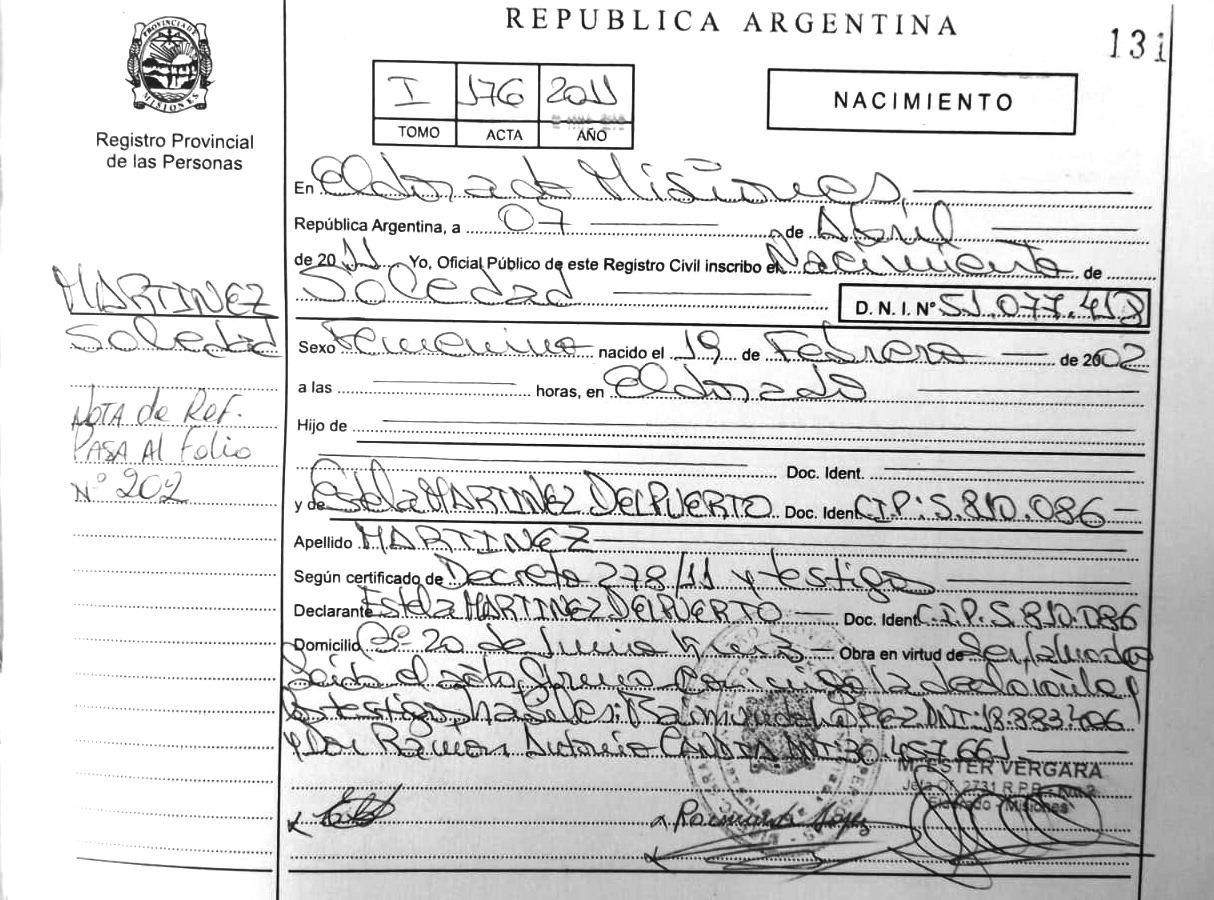 REPUBLICA ARGENTINA
13i
PROVINCIA DE MISIONES
Registro Provincial
de las Personas
I 176 2011
TOMO ACTA AÑO
NACIMIENTO
En Eldorado Misiones,
República Argentina, a 07 de Abril
de 2011 Yo, Oficial Público de este Registro Civil inscribo el Nacimiento de
Soledad D. N. I. Nº 51.077.418
MARTINEZ
Soledad
Sexo Femenino nacido el 19 de Febrero de 2002
a las horas, en Eldorado
NOTA de Ref.
PASA Al Folio
Nº 202
Hijo de
Doc. Ident.
y de Estela MARTINEZ DELPUERTO Doc. Ident C.I.P: 5.810.086
Apellido MARTINEZ
Según certificado de Decreto 278/11 y testigo
Declarante Estela MARTINEZ DELPUERTO Doc. Ident C.I.P. 5.810.086
Domicilio Bº 20 de Junio Obra en virtud de
Leido el acta, firma conmigo la declarante y
testigos habiles: Raimunda LOPEZ DNI: 18.883.406
y Don Ramon Antonio CANDIA DNI: 30.457.661
M. ESTER VERGARA
Eldorado - Misiones
Raimunda Lopez